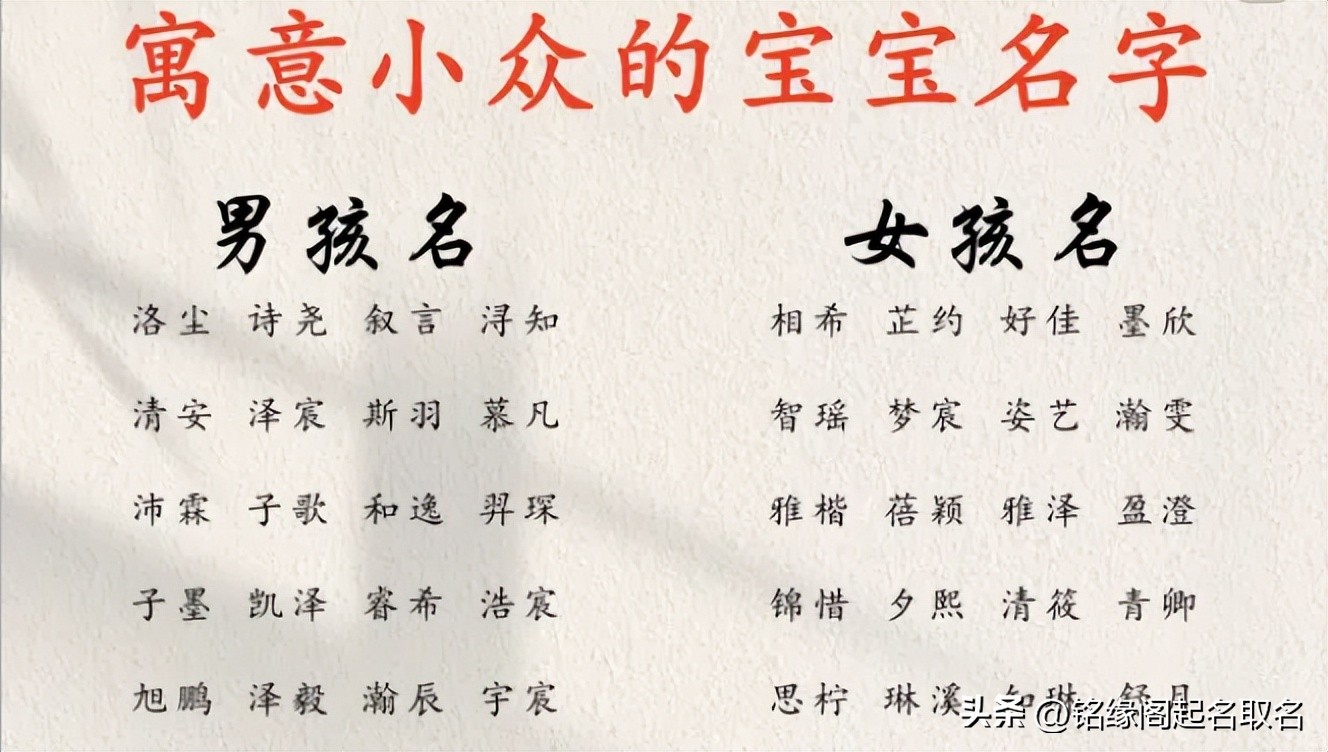 寓意小众的宝宝名字
男孩名
洛尘 诗尧 叙言 浔知
清安 泽宸 斯羽 慕凡
沛霖 子歌 和逸 羿琛
子墨 凯泽 睿希 浩宸
旭鹏 泽毅 瀚辰 宇宸
女孩名
相希 芷约 好佳 墨欣
智瑶 梦宸 姿艺 瀚雯
雅楷 蓓颖 雅泽 盈澄
锦惜 夕熙 清筱 青卿
思柠 琳溪 如琳 舒月
头条 @铭缘阁起名取名